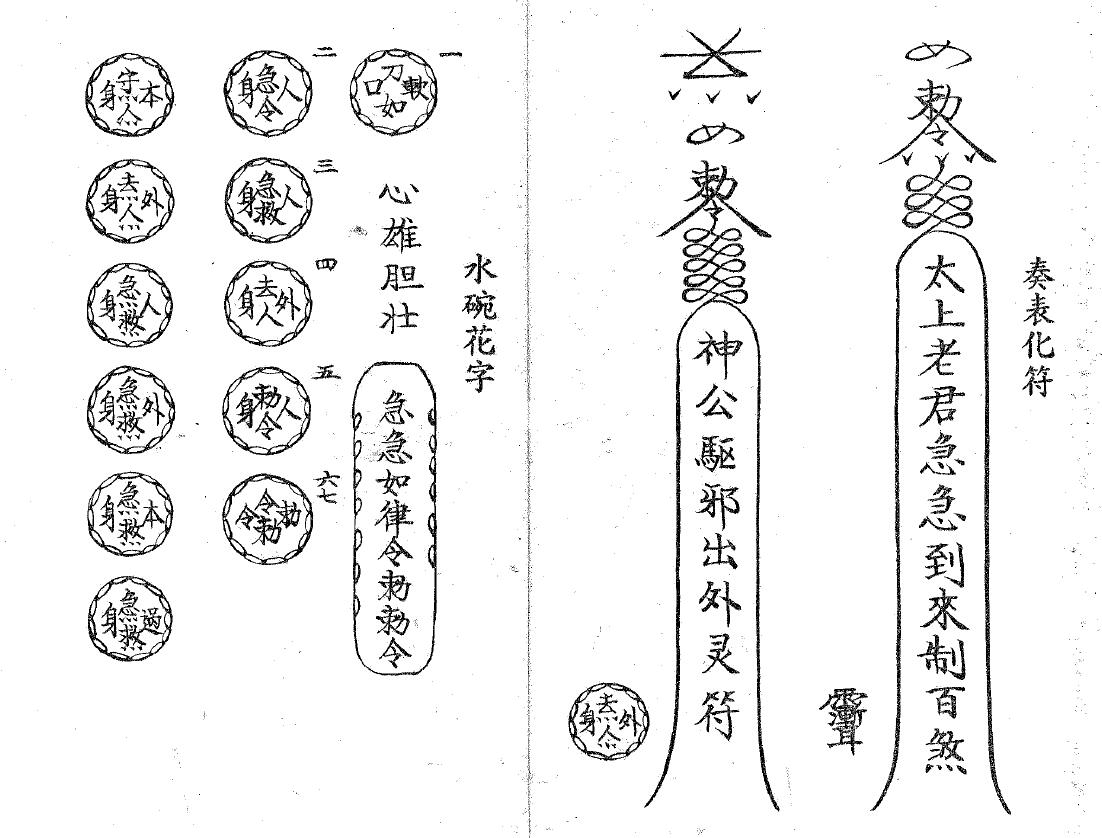 奏表化符
勅令
太上老君急急到來制百煞
勅令
神公驅邪出外灵符
去外身人
水碗花字
一
刀軟口如
心雄胆壮
急急如律令勅勅令
二
急人身令
三
急人身救
四
去外身人
五
勅人身令
六七
令勅令勅
本身
去外身人
急人身救
急外身救
急本身救
急過身救